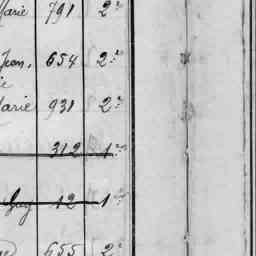 Marie 791 2e
Jean, 654 2e
Marie 931 2e
312 1e
Guy 12 1e
655 2e